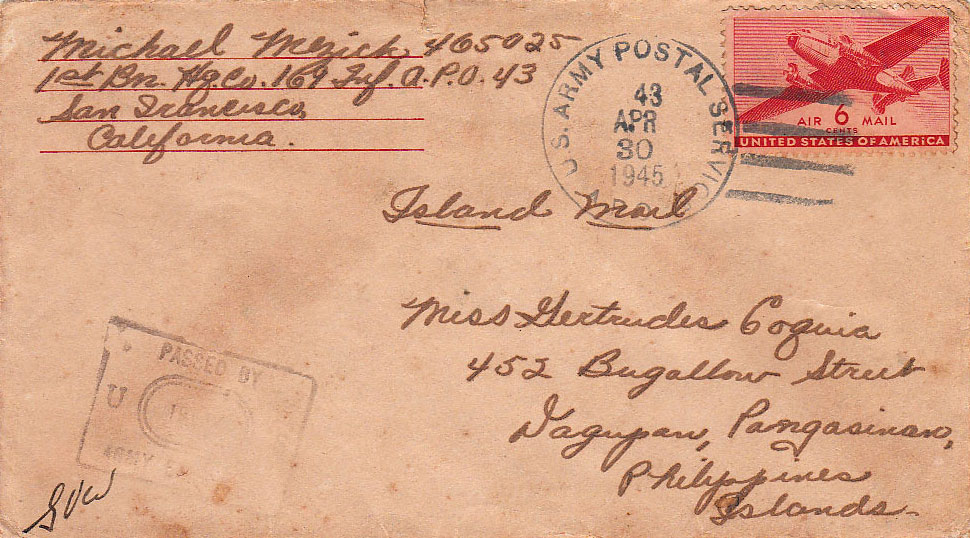 Michael Mezick 465025
1st Bn. Hq. Co. 169 Inf. A.P.O. 43
San Francisco,
California.
U.S. ARMY POSTAL SERVICE
43
APR
30
1945
AIR 6 MAIL
CENTS
UNITED STATES OF AMERICA
Island Mail
Miss Gertrudes Coquia
452 Bugallow Street
Dagupan, Pangasinan,
Philippines
Islands
PASSED BY
U
ARMY